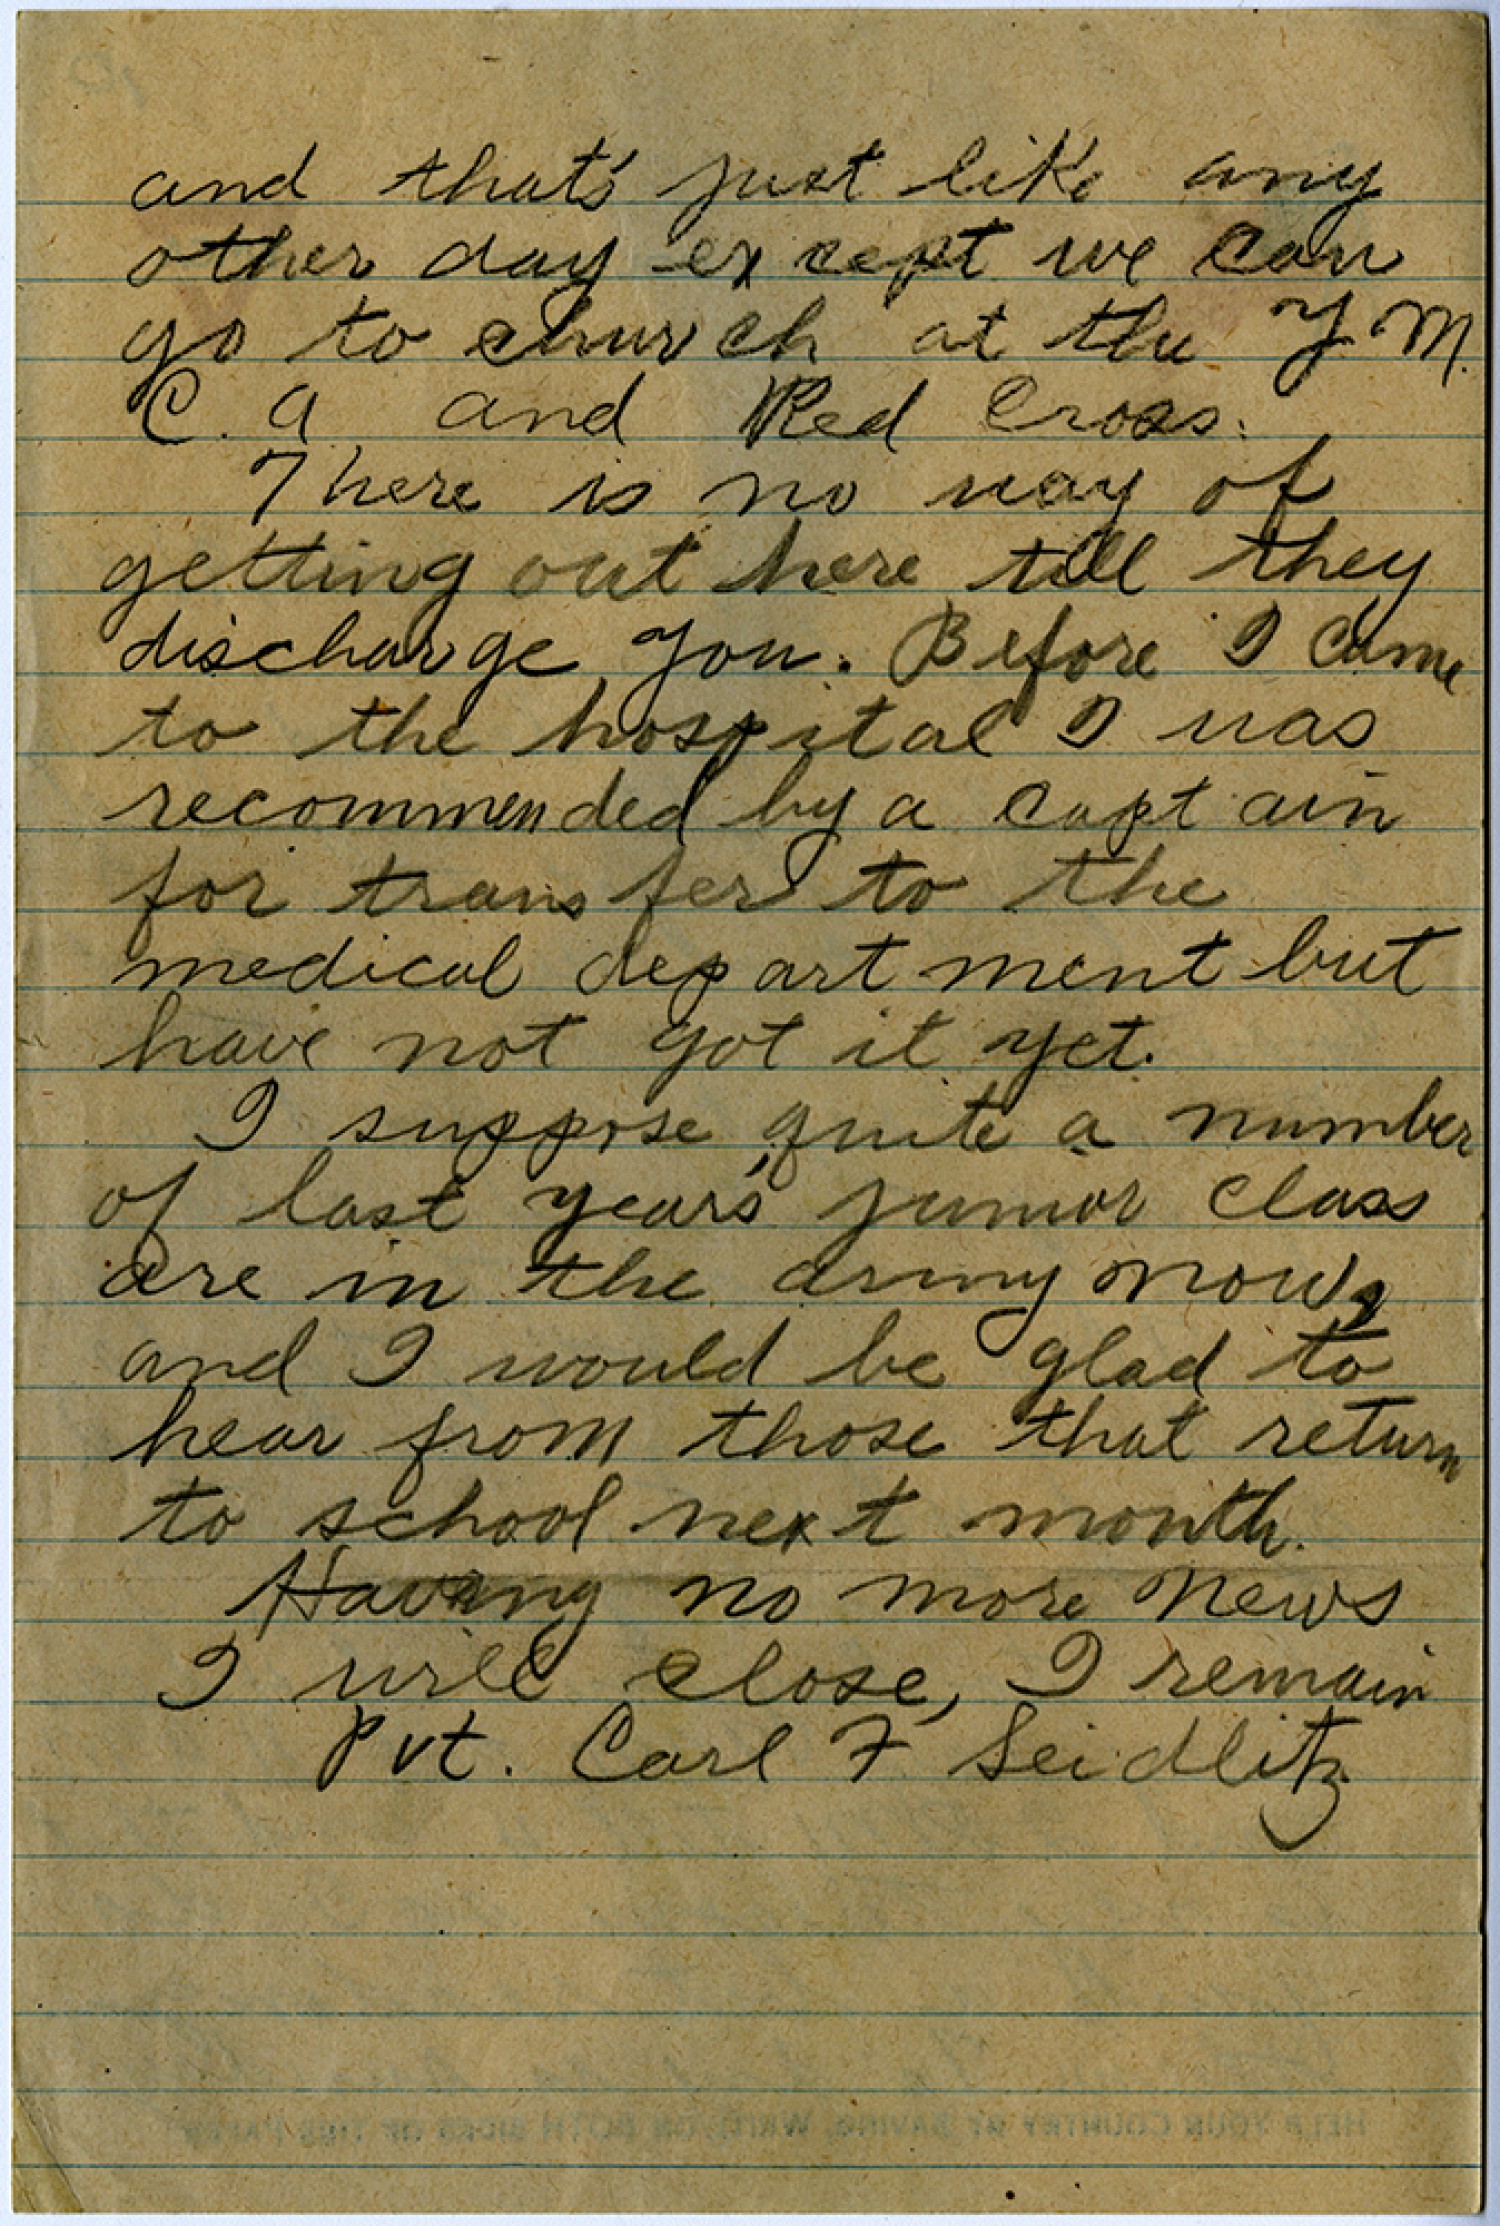 and that's just like any
other day except we can
go to church at the Y M.
C. A and Red Cross.
There is no way of
getting out here till they
discharge you. Before I came
to the hospital I was
recommended by a captain
for transfer to the
medical department but
have not got it yet.
I suppose quite a number
of last year's junior class
are in the army now,
and I would be glad to
hear from those that return
to school next month.
Having no more news
I will close, I remain
Pvt. Carl F Seidlitz
HELP YOUR COUNTRY BY SAVING, WRITE ON BOTH SIDES OF THIS PAPER